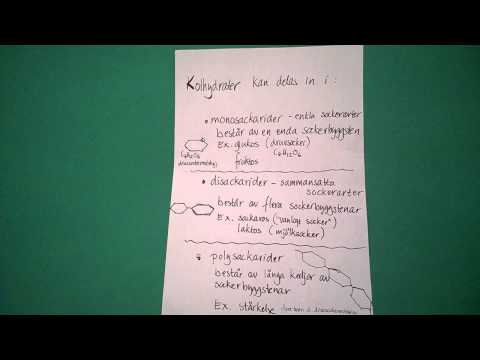 Kolhydrater kan delas in i :
• monosackarider - enkla sockerarter
består av en enda sockerbyggsten
Ex. glukos (druvsocker)
C6H12O6
C6H12O6
fruktos
• disackarider - sammansatta
sockerarter
består av flera sockerbyggstenar
Ex. sackaros ("vanligt socker")
laktos (mjölksocker)
• polysackarider
består av långa kedjor av
sockerbyggstenar
Ex. stärkelse